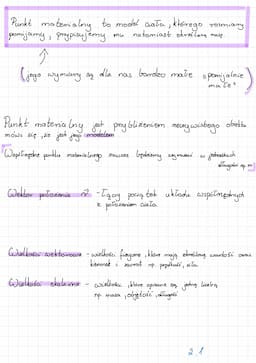 Punkt materialny to model ciała, którego rozmiary
pomijamy, przypisujemy mu natomiast określoną masę.
(jego wymiary są dla nas bardzo małe "pomijalnie
małe")
Punkt materialny jest przybliżeniem rzeczywistego obiektu
mówi się, że jest jego modelem
Współrzędne punktu materialnego zawsze będziemy wyrażali w jednostkach
długości np m
Wektor położenia r⃗ - łączy początek układu współrzędnych
z położeniem ciała.
Wielkości wektorowe - wielkości fizyczne, które mają określoną wartość oraz
kierunek i zwrot np. prędkość, siła
Wielkości skalarne - wielkości, które opisane są jedną liczbą
np. masa, objętość, długość
2.1